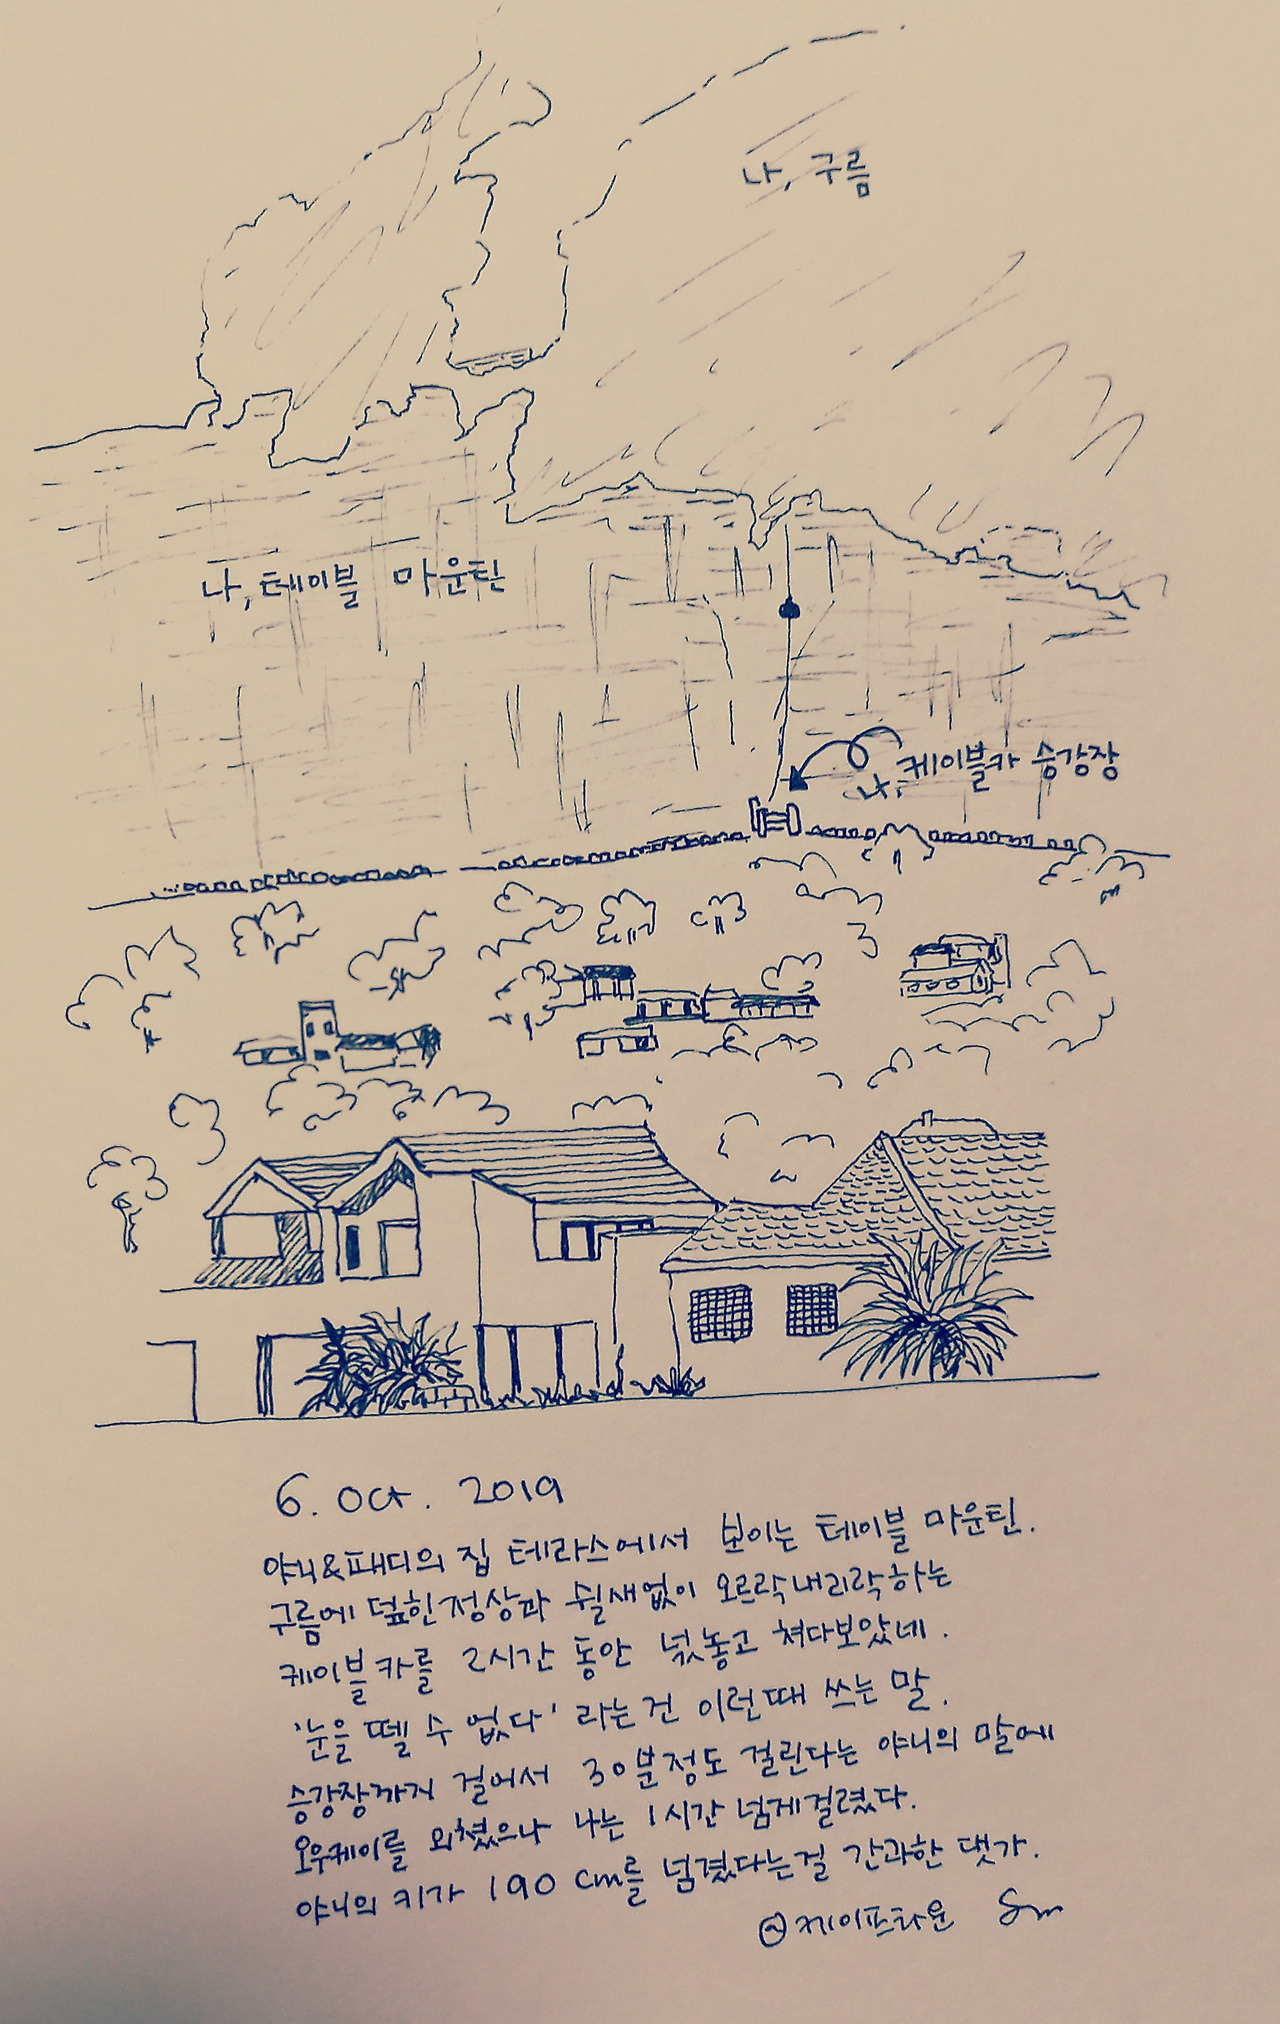 나, 구름
나, 테이블 마운틴
나, 케이블카 승강장
6. Oct. 2019
야니&패디의 집 테라스에서 보이는 테이블 마운틴.
구름에 덮힌 정상과 쉴새없이 오르락내리락하는
케이블카를 2시간 동안 넋놓고 쳐다보았네.
'눈을 뗄 수 없다' 라는건 이런때 쓰는 말.
승강장까지 걸어서 30분정도 걸린다는 야니의 말에
오우케이를 외쳤으나 나는 1시간 넘게걸렸다.
야니의 키가 190 cm를 넘겼다는걸 간과한 댓가.
@케이프타운 Sm